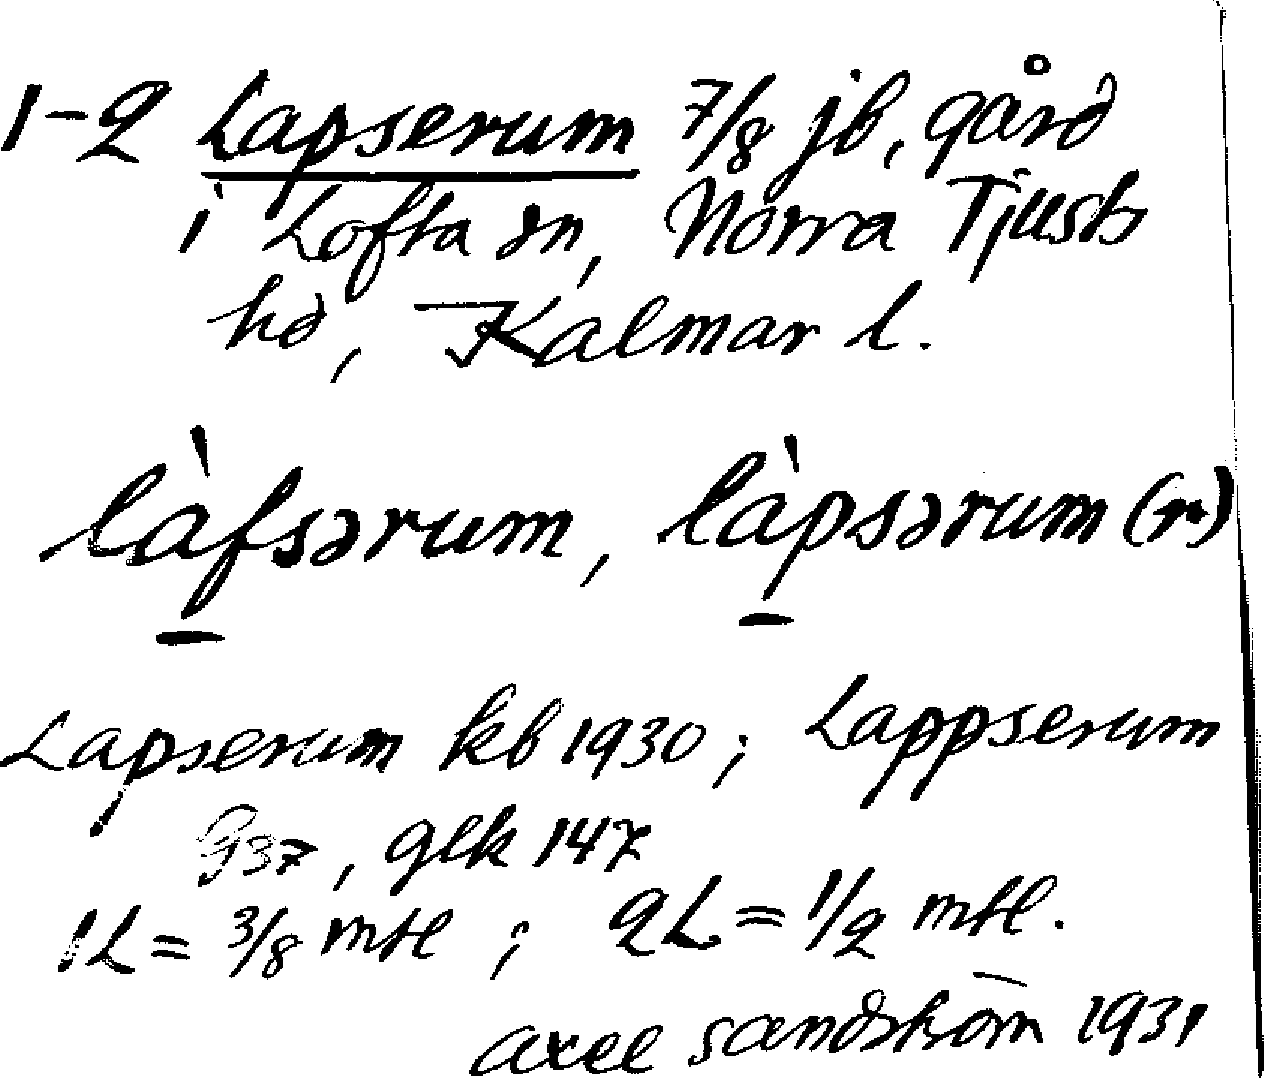 1-2 Lapserum 7/8 jb, gård
i Lofta sn, Norra Tjusts
hd, Kalmar l.
làfsərum, làpsərum (r)
Lapserum kb 1930; Lappserum
G37, glk 147
1L = 3/8 mtl; 2L = 1/2 mtl.
Axel Sandström 1931